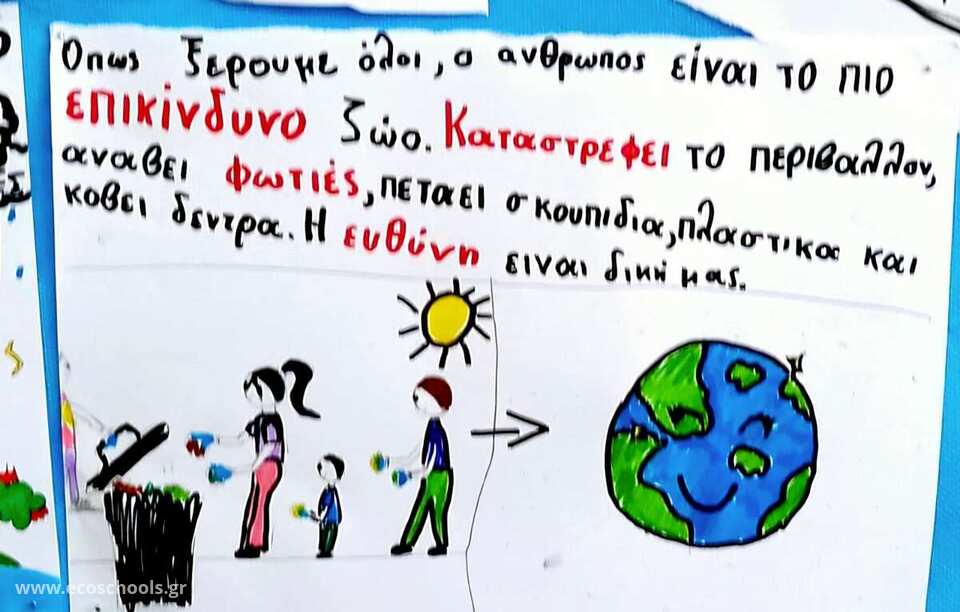 Οπως ξερουμε όλοι, ο ανθρωπος είναι το πιο
επικίνδυνο ζώο. Καταστρεφει το περιβαλλον,
αναβει φωτιές, πεταει σκουπιδια, πλαστικα και
κοβει δεντρα. Η ευθύνη ειναι δική μας.
www.ecoschools.gr